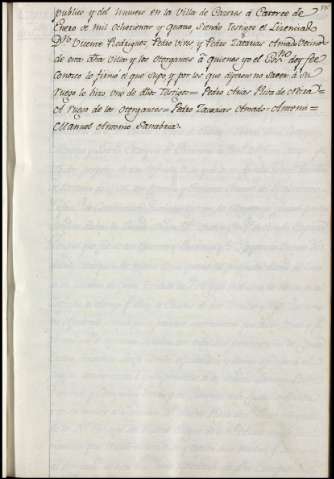 publico y del numero en la Villa de Cazeres à Catorce de
Enero de mil ochocientos y quatro, siendo testigos el Licenciado
Dn. Vicente Rodriguez, Pedro Vivas, y Pedro Zacarias Amado Vecinos
de esta dha Villa; y los otorgantes à quienes yo el Essno. doy fee
conozco lo firmó el que supo, y por los que dijeron no saber à su
ruego lo hizo uno de dhos testigos = Pedro Arias Plaza de
A ruego de los otorgantes = Pedro Zacarias Amado = Antemi =
Manuel Antonio Sanabria